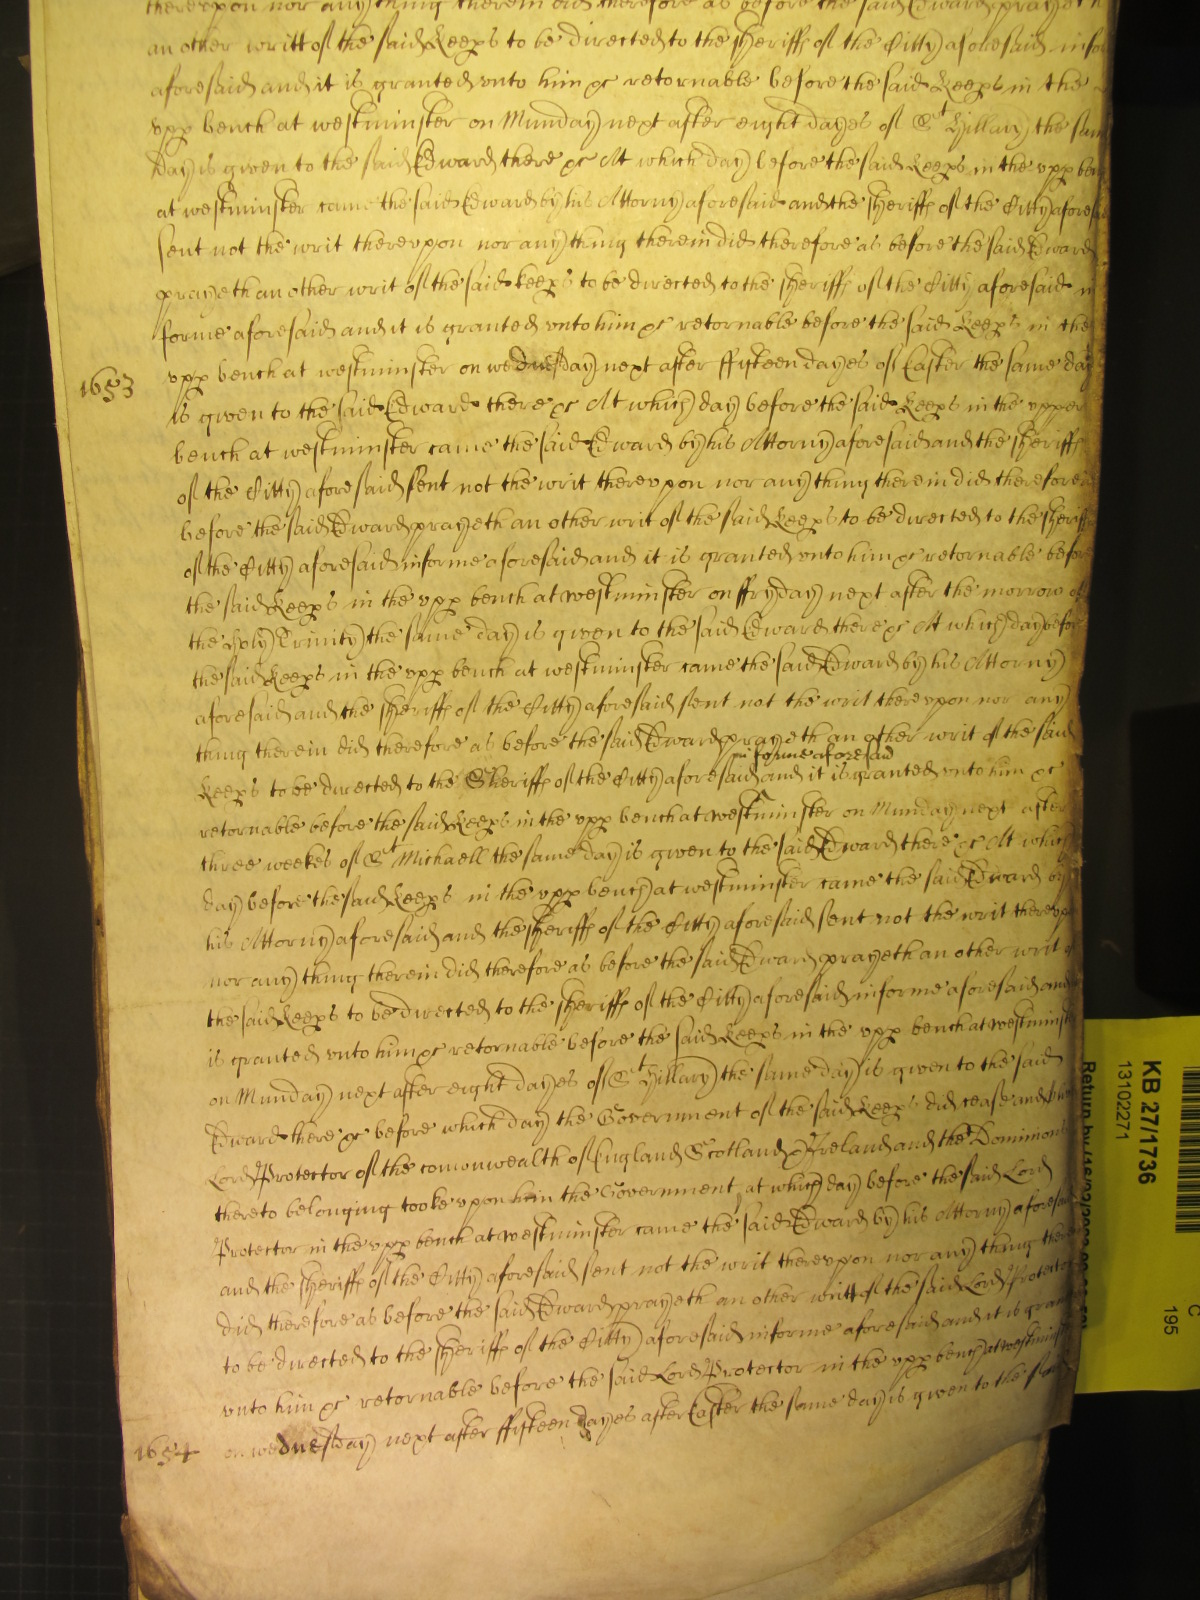 therevpon nor any thing therein did therefore as before the said Edward prayeth
an other writt of the said Keeps to be directed to the sheriffe of the Citty aforesaid in for
aforesaid and it is granted vnto him &c retornable before the said Keeps in the
vpp bench at westminster on Munday next after eight dayes of St Hillary the sam
day is given to the said Edward there &c At which day before the said Keeps in the vpp ben
at westminster came the said Edward by his Attorny aforesaid and the sheriffe of the Citty afores
sent not the writ therevpon nor any thing therein did therefore as before the said Edward
prayeth an other writ of the said keeps to be directed to the sheriffe of the Citty aforesaid in
forme aforesaid and it is granted vnto him &c retornable before the said Keeps in the
vpp bench at westminster on wednesday next after ffifteen dayes of Easter the same day
1653
is given to the said Edward there &c At which day before the said Keeps in the vpper
bench at westminster came the said Edward by his Attorny aforesaid and the sheriffe
of the Citty aforesaid sent not the writ therevpon nor any thing therein did therefore
before the said Edward prayeth an other writ of the said Keeps to be directed to the sheriffe
of the Citty aforesaid in forme aforesaid and it is granted vnto him &c retornable before
the said Keeps in the vpp bench at westminster on ffryday next after the morrow of
the holy Trinity the same day is given to the said Edward there &c At which day before
the said Keeps in the vpp bench at westminster came the said Edward by his Attorny
aforesaid and the sheriffe of the Citty aforesaid sent not the writ therevpon nor any
thing therein did therefore as before the said Edward prayeth an other writ of the said
in forme aforesaid
Keeps to be directed to the Sheriffe of the Citty aforesaid and it is granted vnto him &c
retornable before the said Keeps in the vpp bench at westminster on Munday next after
three weekes of St Michaell the same day is given to the said Edward there &c At which
day before the said Keeps in the vpp bench at westminster came the said Edward by
his Attorny aforesaid and the sheriffe of the Citty aforesaid sent not the writ therevp
nor any thing therein did therefore as before the said Edward prayeth an other writ of
the said Keeps to be directed to the sheriffe of the Citty aforesaid in forme aforesaid and
is granted vnto him &c retornable before the said Keeps in the vpp bench at westminst
on Munday next after eight dayes of St Hillary the same day is given to the said
Edward there &c before which day the Government of the said Keeps did cease and the
Lord Protector of the comonwealth of England Scotland & Ireland and the Dominions
thereto belonging tooke vpon him the Government at which day before the said Lord
Protector in the vpp bench at westminster came the said Edward by his Attorny aforesaid
and the sheriffe of the Citty aforesaid sent not the writ therevpon nor any thing there
did therefore as before the said Edward prayeth an other writt of the said Lord Protector
to be directed to the sheriffe of the Citty aforesaid in forme aforesaid and it is gran
vnto him &c retornable before the said Lord Protector in the vpp bench at westminst
1654
on wednesday next after ffifteen dayes after Easter the same day is given to the said
KB 27/1736
13102271
195
C